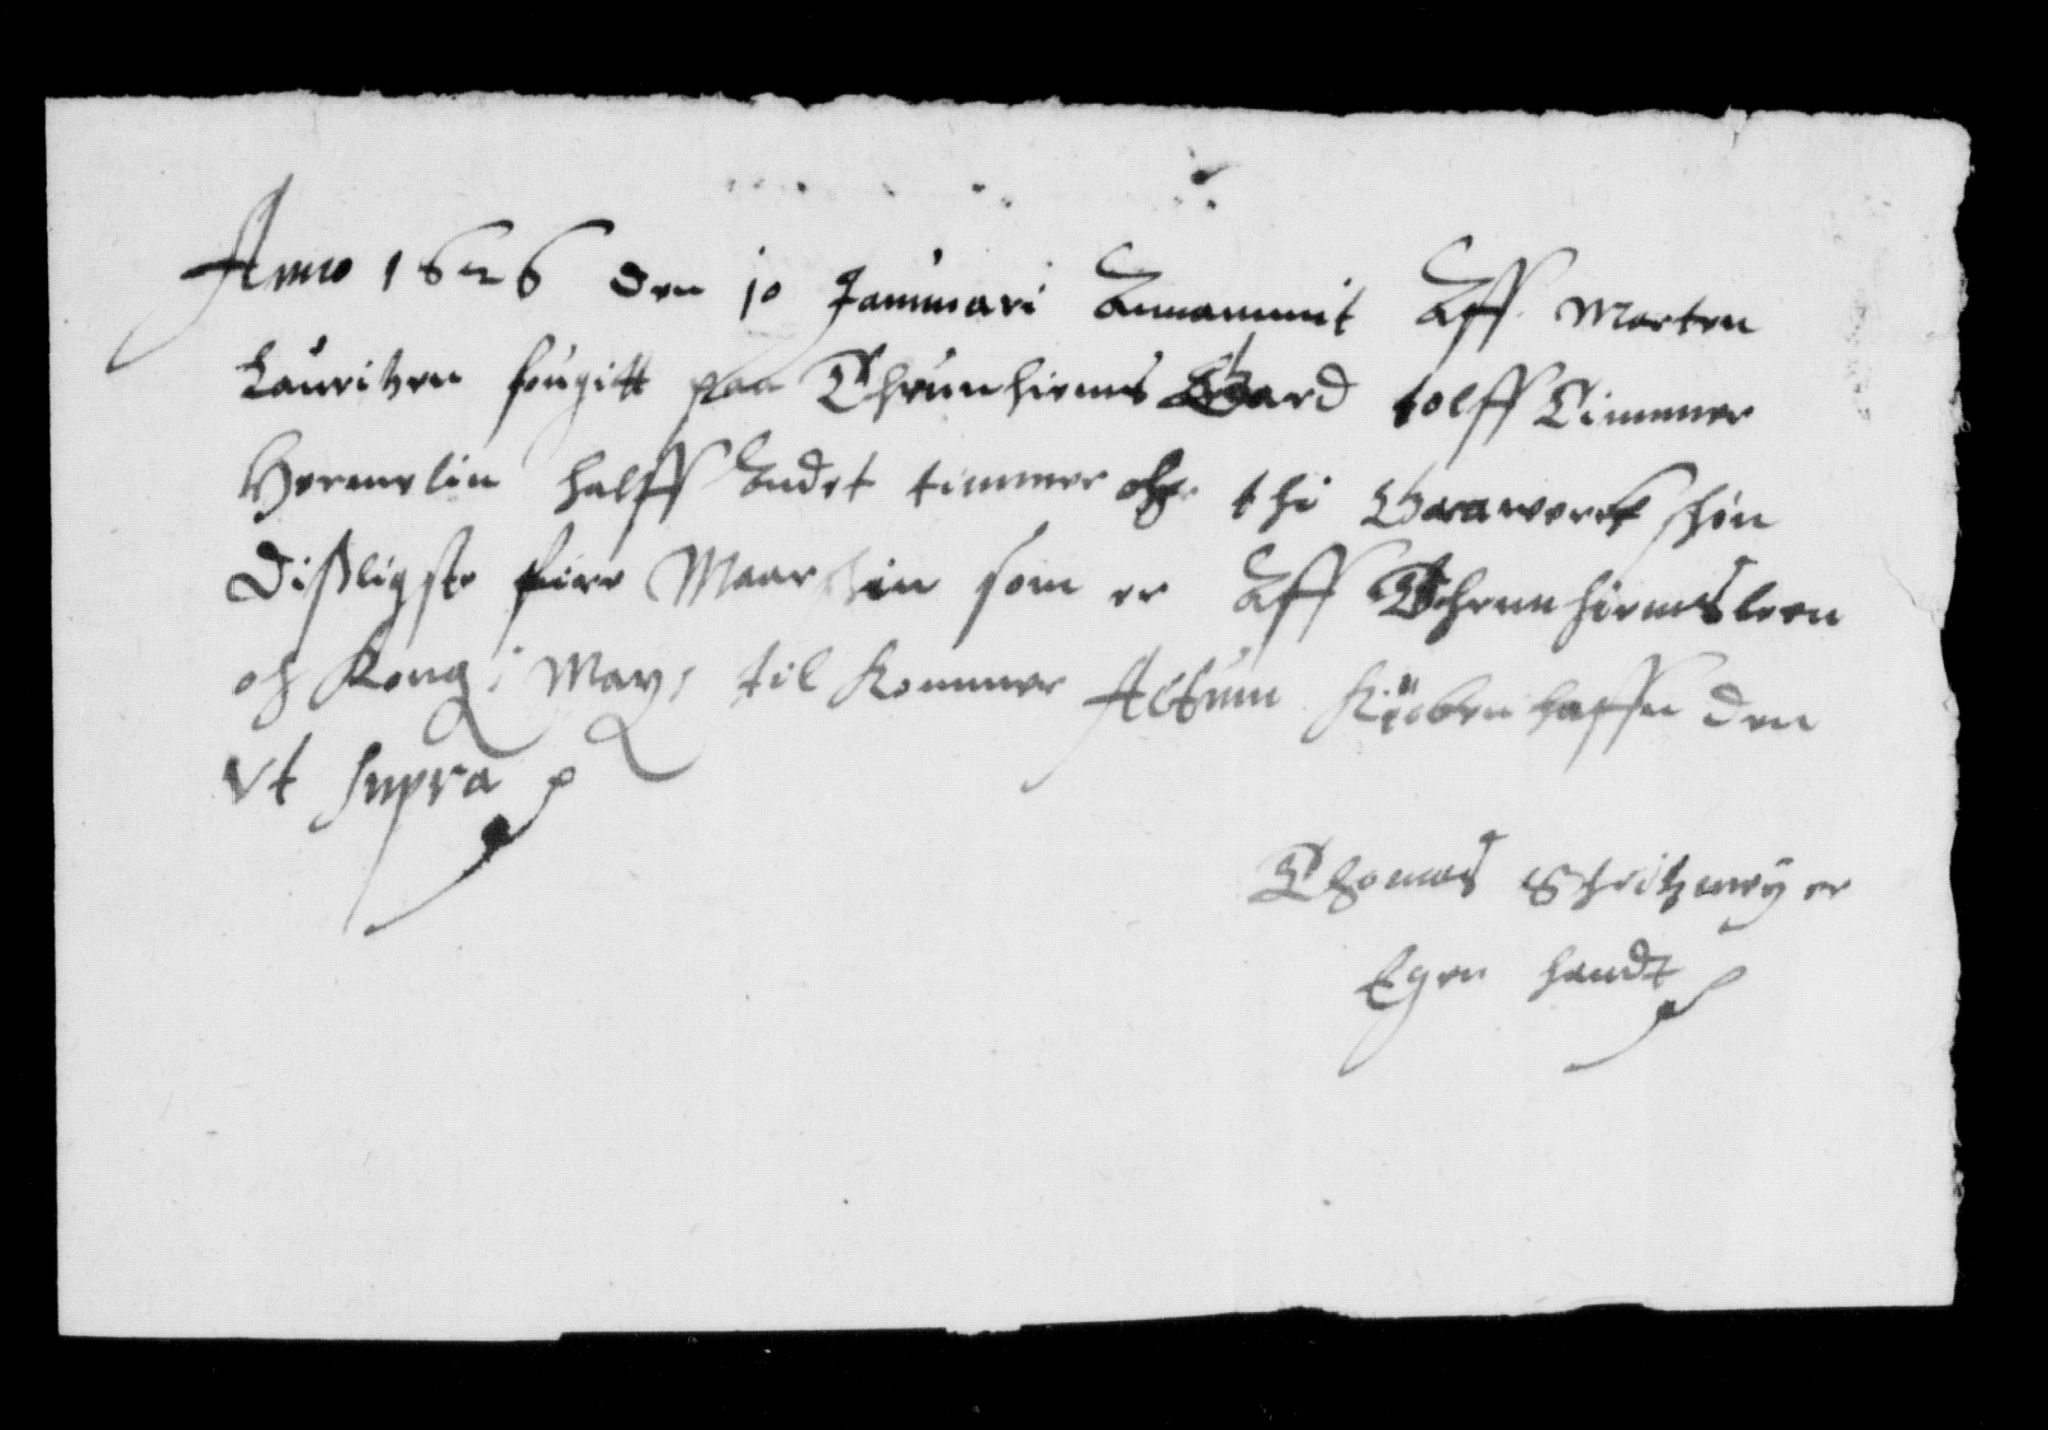 Anno 1626 den 10 Januari Annammit Aff Morten
Lauritzen fougitt paa Thrunhiems Gaard tolff Timmer
Hermelin halff Andet timmer och thi Graawerck schin
Disligste fire Maar schin som er Aff Thrunhiems leen
och Kong: May: til kommer Actum Kiøbenhaffn den
Vt supra
Thomas Schritzmeÿer
Egen handt